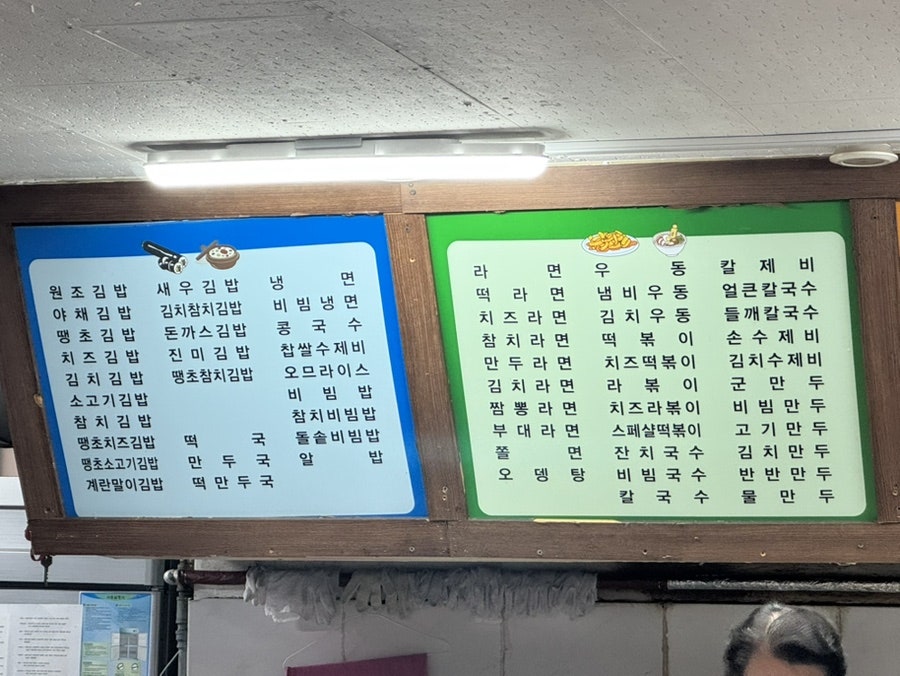 원조김밥
야채김밥
땡초김밥
치즈김밥
김치김밥
소고기김밥
참치김밥
땡초치즈김밥
땡초소고기김밥
계란말이김밥
새우김밥
김치참치김밥
돈까스김밥
진미김밥
땡초참치김밥
떡국
만두국
떡만두국
냉면
비빔냉면
콩국수
찹쌀수제비
오므라이스
비빔밥
참치비빔밥
돌솥비빔밥
알밥
라면
떡라면
치즈라면
참치라면
만두라면
김치라면
짬뽕라면
부대라면
쫄면
오뎅탕
우동
냄비우동
김치우동
떡볶이
치즈떡볶이
라볶이
치즈라볶이
스페샬떡볶이
잔치국수
비빔국수
칼국수
칼제비
얼큰칼국수
들깨칼국수
손수제비
김치수제비
군만두
비빔만두
고기만두
김치만두
반반만두
물만두